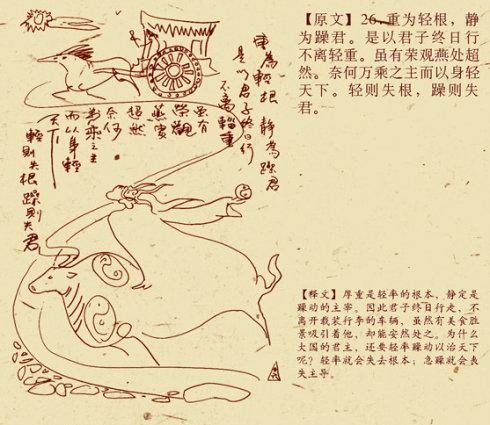 【原文】26.重为轻根，静
为躁君。是以君子终日行
不离轻重。虽有荣观燕处超
然。奈何万乘之主而以身轻
天下。轻则失根，躁则失
君．
重為輕根 静為躁君
是以君子終日行
不离輜重
虽有
榮觀
燕處
超然
奈何
萬乘之主
而以身輕
天下
輕則失根 躁則失君
【释文】厚重是轻率的根本，静定是
躁动的主宰。因此君子终日行走，不
离开载装行李的车辆，虽然有美食胜
景吸引着他，却能安然处之。为什么
大国的君主，还要轻率躁动以治天下
呢？轻率就会失去根本；急躁就会丧
失主导。